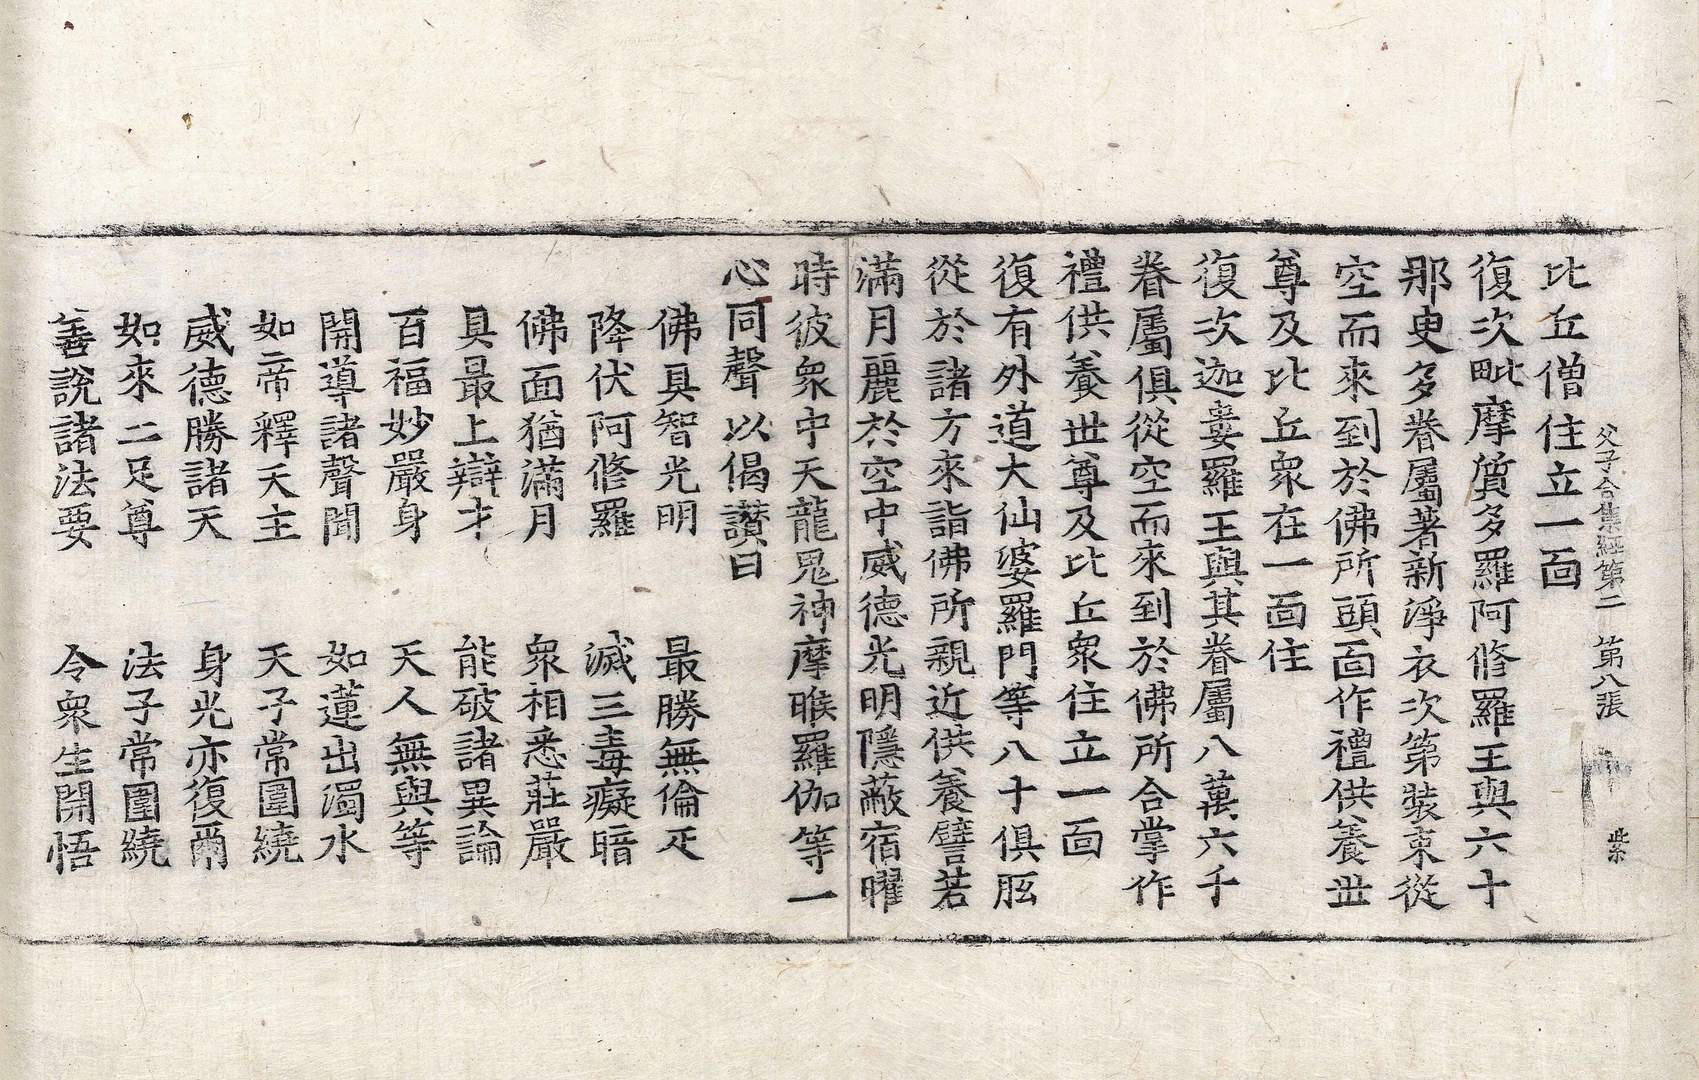 父子合集經第二　第八張　紫
比丘僧住立一面
復次毗摩質多羅阿修羅王與六十
那㐬多眷屬著新淨衣次第裝束從
空而來到於佛所頭面作禮供養世
尊及比丘衆在一面住
復次迦婁羅王與其眷屬八萬六千
眷屬俱從空而來到於佛所合掌作
禮供養世尊及比丘衆住立一面
復有外道大仙婆羅門等八十俱胝
從於諸方來詣佛所親近供養譬若
滿月麗於空中威德光明隱蔽宿曜
時彼衆中天龍鬼神摩睺羅伽等一
心同聲以偈讚曰
佛具智光明　最勝無倫疋
降伏阿修羅　滅三毒癡暗
佛面猶滿月　衆相悉莊嚴
具最上辯才　能破諸異論
百福妙嚴身　天人無與等
開導諸聲聞　如蓮出濁水
如帝釋天主　天子常圍繞
威德勝諸天　身光亦復爾
如來二足尊　法子常圍繞
善說諸法要　令衆生開悟